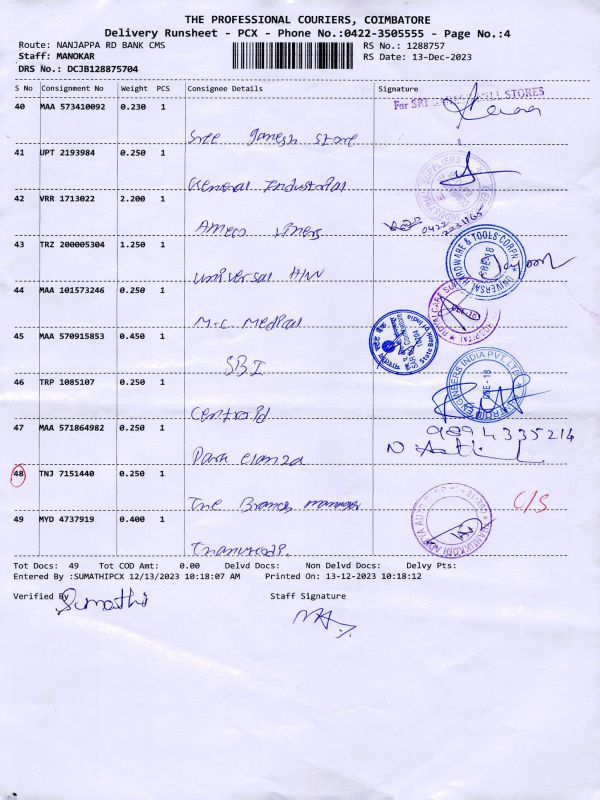 THE PROFESSIONAL COURIERS, COIMBATORE
Delivery Runsheet - PCX - Phone No.:0422-3505555 - Page No.:4
Route: NANJAPPA RD BANK CMS
RS No.: 1288757
Staff: MANOKAR
RS Date: 13-Dec-2023
DRS No.: DCJB128875704
S No Consignment No Weight PCS Consignee Details Signature
40 MAA 573410092 0.230 1
For SRI STORES
Sree Ganesh Store
41 UPT 2193984 0.250 1
General Industrial
42 VRR 1713022 2.200 1
0422
Ameco Liners
43 TRZ 200005304 1.250 1
UNIVERSAL HARDWARE & TOOLS CORPN
Universal H/W
44 MAA 101573246 0.250 1
M.C. Medical
45 MAA 570915853 0.450 1
State Bank of India
SBI
46 TRP 1085107 0.250 1
ENGINEERS INDIA PVT LTD
Centroid
47 MAA 571864982 0.250 1
9894335214
Park Elanza
48 TNJ 7151440 0.250 1
C/S
The Branch manager
49 MYD 4737919 0.400 1
Tot Docs: 49 Tot COD Amt: 0.00 Delvd Docs: Non Delvd Docs: Delvy Pts:
Entered By :SUMATHIPCX 12/13/2023 10:18:07 AM Printed On: 13-12-2023 10:18:12
Verified By Sumathi
Staff Signature